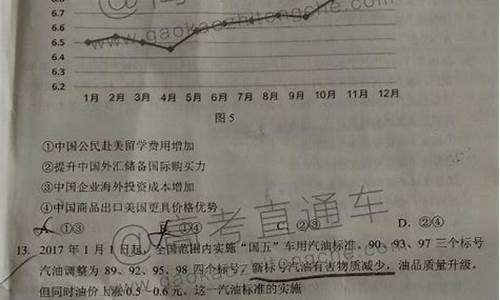 6.8
6.7
6.6
6.5
6.4
6.3
6.2
1月 2月 3月 4月 5月 6月 7月 8月 9月 10月 11月 12月
图 5
①中国公民赴美留学费用增加
②提升中国外汇储备国际购买力
③中国企业海外投资成本增加
④中国商品出口美国更具价格优势
①③ ①④ C. ②③ D. ②④
13. 2017 年 1 月 1 日起，全国范围内实施“国五”车用汽油标准。90、93、97 三个标号
汽油调整为 89、92、95、98 四个标号，新标号汽油有害物质减少，油品质量升级，
但同时油价上涨 0.5—0.6 元。这一汽油标准的实施
www.gaokaozhitongche.com
@高考直通车